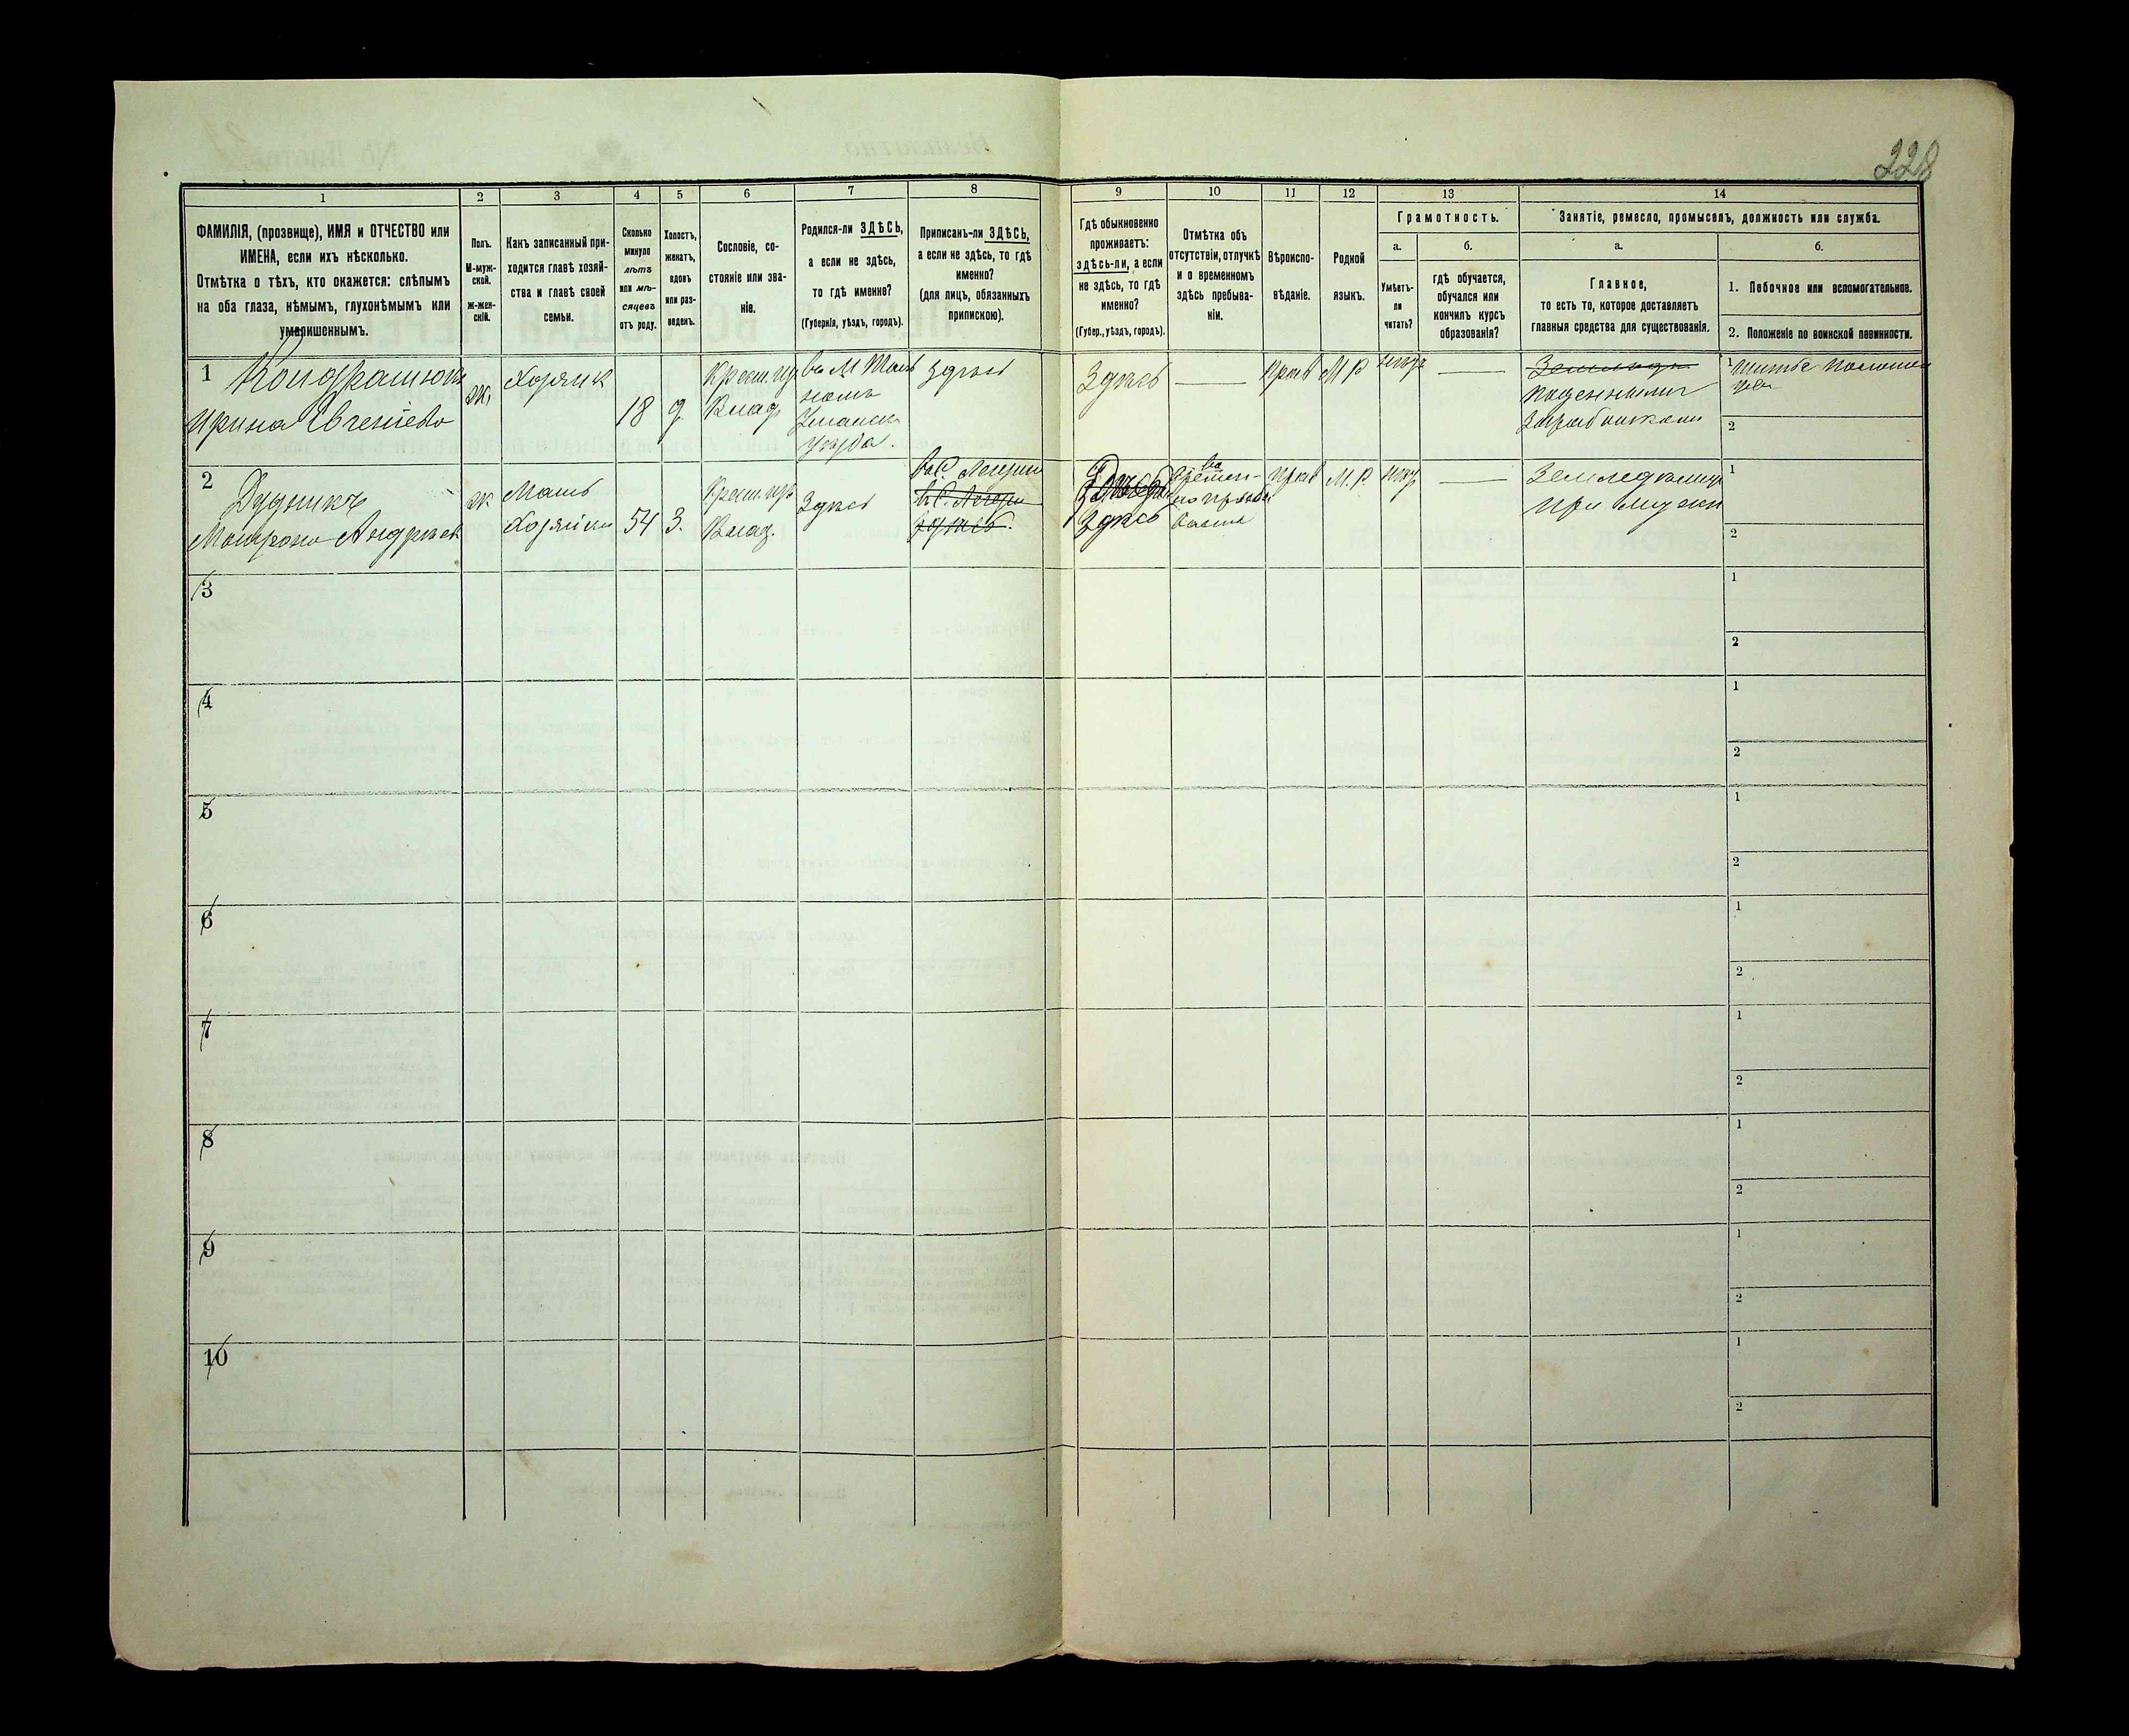 228
1
2
3
4
5
6
7
8
9
10
11
12
13
14
ФАМИЛІЯ, (прозвище), ИМЯ и ОТЧЕСТВО или
ИМЕНА, если ихъ нѣсколько.
Отмѣтка о тѣхъ, кто окажется: слѣпымъ
на оба глаза, нѣмымъ, глухонѣмымъ или
умалишеннымъ.
Полъ.
М-муж-
ской.
ж-жен-
скій.
Какъ записанный при-
ходится главѣ хозяй-
ства и главѣ своей
семьи.
Сколько
минуло
лѣтъ
или мѣ-
сяцевъ
отъ роду.
Холостъ,
женатъ,
вдовъ
или раз-
веденъ.
Сословіе, со-
стояніе или зва-
ніе.
Родился-ли ЗДѢСЬ,
а если не здѣсь,
то гдѣ именно?
(Губернія, уѣздъ, городъ).
Приписанъ-ли ЗДѢСЬ,
а если не здѣсь, то гдѣ
именно?
(для лицъ, обязанныхъ
припискою).
Гдѣ обыкновенно
проживаетъ:
здѣсь-ли, а если
не здѣсь, то гдѣ
именно?
(Губер., уѣздъ, городъ).
Отмѣтка объ
отсутствіи, отлучкѣ
и о временномъ
здѣсь пребыва-
ніи.
Вѣроиспо-
вѣданіе.
Родной
языкъ.
Грамотность.
а.
Умѣетъ-
ли
читать?
б.
гдѣ обучается,
обучался или
кончилъ курсъ
образованія?
Занятіе, ремесло, промыселъ, должность или служба.
а.
Главное,
то есть то, которое доставляетъ
главныя средства для существованія.
б.
1. Побочное или вспомогательное.
2. Положеніе по воинской повинности.
1
Ирина Евгеніева
ж
Хозяик
18
д
Крест. изъ
Влад
уѣзда.
здѣсь
Здѣсь
прав
М Р
нѣтъ
Поденными
Заработками
1
2
2
Дудникъ
Матрона Андрѣев
ж
Мать
Хозяйки
54
З.
Крест. изъ
Влад.
Здѣсь
здѣсь.
Здѣсь
прав
М. Р
нѣтъ
Земледѣлец
при мужи
1
2
3
1
2
4
1
2
5
1
2
6
1
2
7
1
2
8
1
2
9
1
2
10
1
2